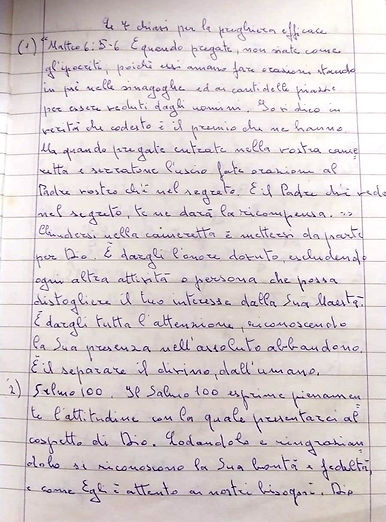 Le 7 chiavi per la preghiera efficace
(1) "Matteo 6:5-6 E quando pregate, non siate come
gl'ipocriti, poiché essi amano fare orazioni stando
in pié nelle sinagoghe ed ai canti delle piazze
per essere veduti dagli uomini. Io vi dico in
verità che codesto è il premio che ne hanno.
Ma quando pregate entrate nella vostra came
retta e serratone l'uscio fate orazione al
Padre vostro ch'è nel segreto. E il Padre che vede
nel segreto, te ne darà la ricompensa.
Chiudersi nella cameretta è mettersi da parte
per Dio. È dargli l'onore dovuto, escludendo
ogni altra attività o persona che possa
distogliere il tuo interesse dalla Sua Maestà.
È dargli tutta l'attenzione, riconoscendo
la Sua presenza nell'assoluto abbandono.
È il separare il divino, dall'umano.
2) Salmo 100. Il Salmo 100 esprime pienamen
te l'attitudine con la quale presentarci al
cospetto di Dio. Lodandolo e ringrazian
dolo si riconoscono la Sua bontà e fedeltà,
e come Egli è attento ai nostri bisogni. Dio